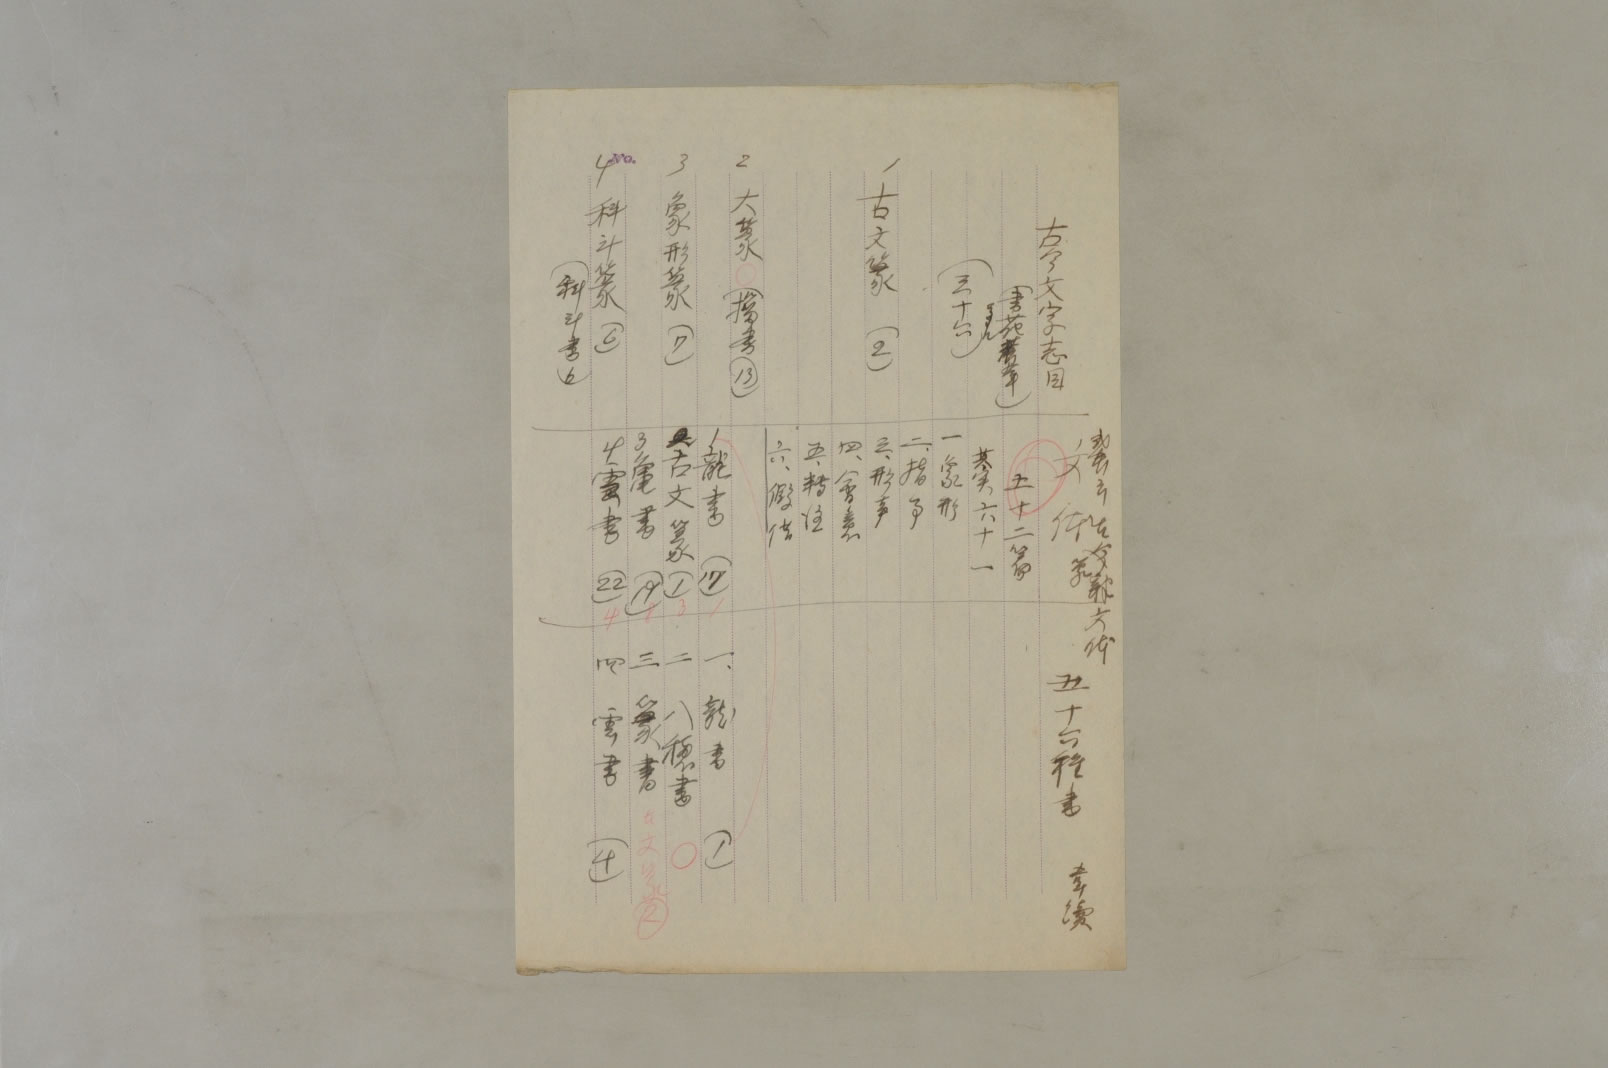 古今文字志目
(書苑菁華)
(三十六)
1 古文篆 (2)
2 大篆 ○ (13)
3 象形篆 (7)
4 科斗篆 (6)
(科斗書 6)
No.
文体
五十二
其実六十一
一 象形
二、指事
三、形声
四、會意
五、轉注
六、假借
1 龍書 (17) 1
古文篆 (1) 3
3 龜書 (19)
4 雲書 (22) 4
五十六種書 韋續
一、龍書 (1)
二 八穂書 ○
三 篆書 古文篆 (2)
四 雲書 (4)